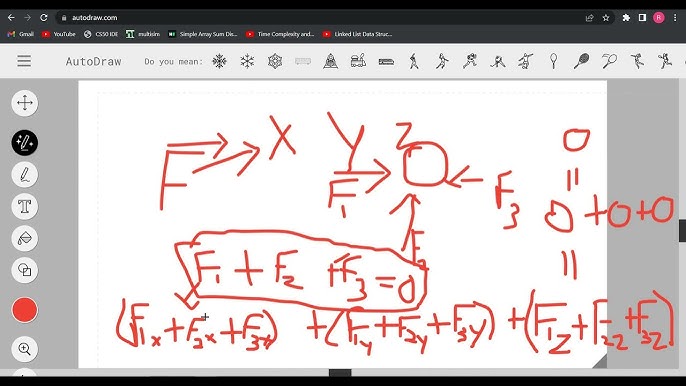 autodraw.com
Gmail YouTube CS50 IDE multisim Simple Array Sum Dis... Time Complexity and... Linked List Data Struc...
AutoDraw Do you mean:
F X Y Z 0
F1 F3
= 0 + 0 + 0
F2
F1 + F2 + F3 = 0 =
(F1x + F2x + F3x) + (F1y + F2y + F3y) + (F1z + F2z + F3z)